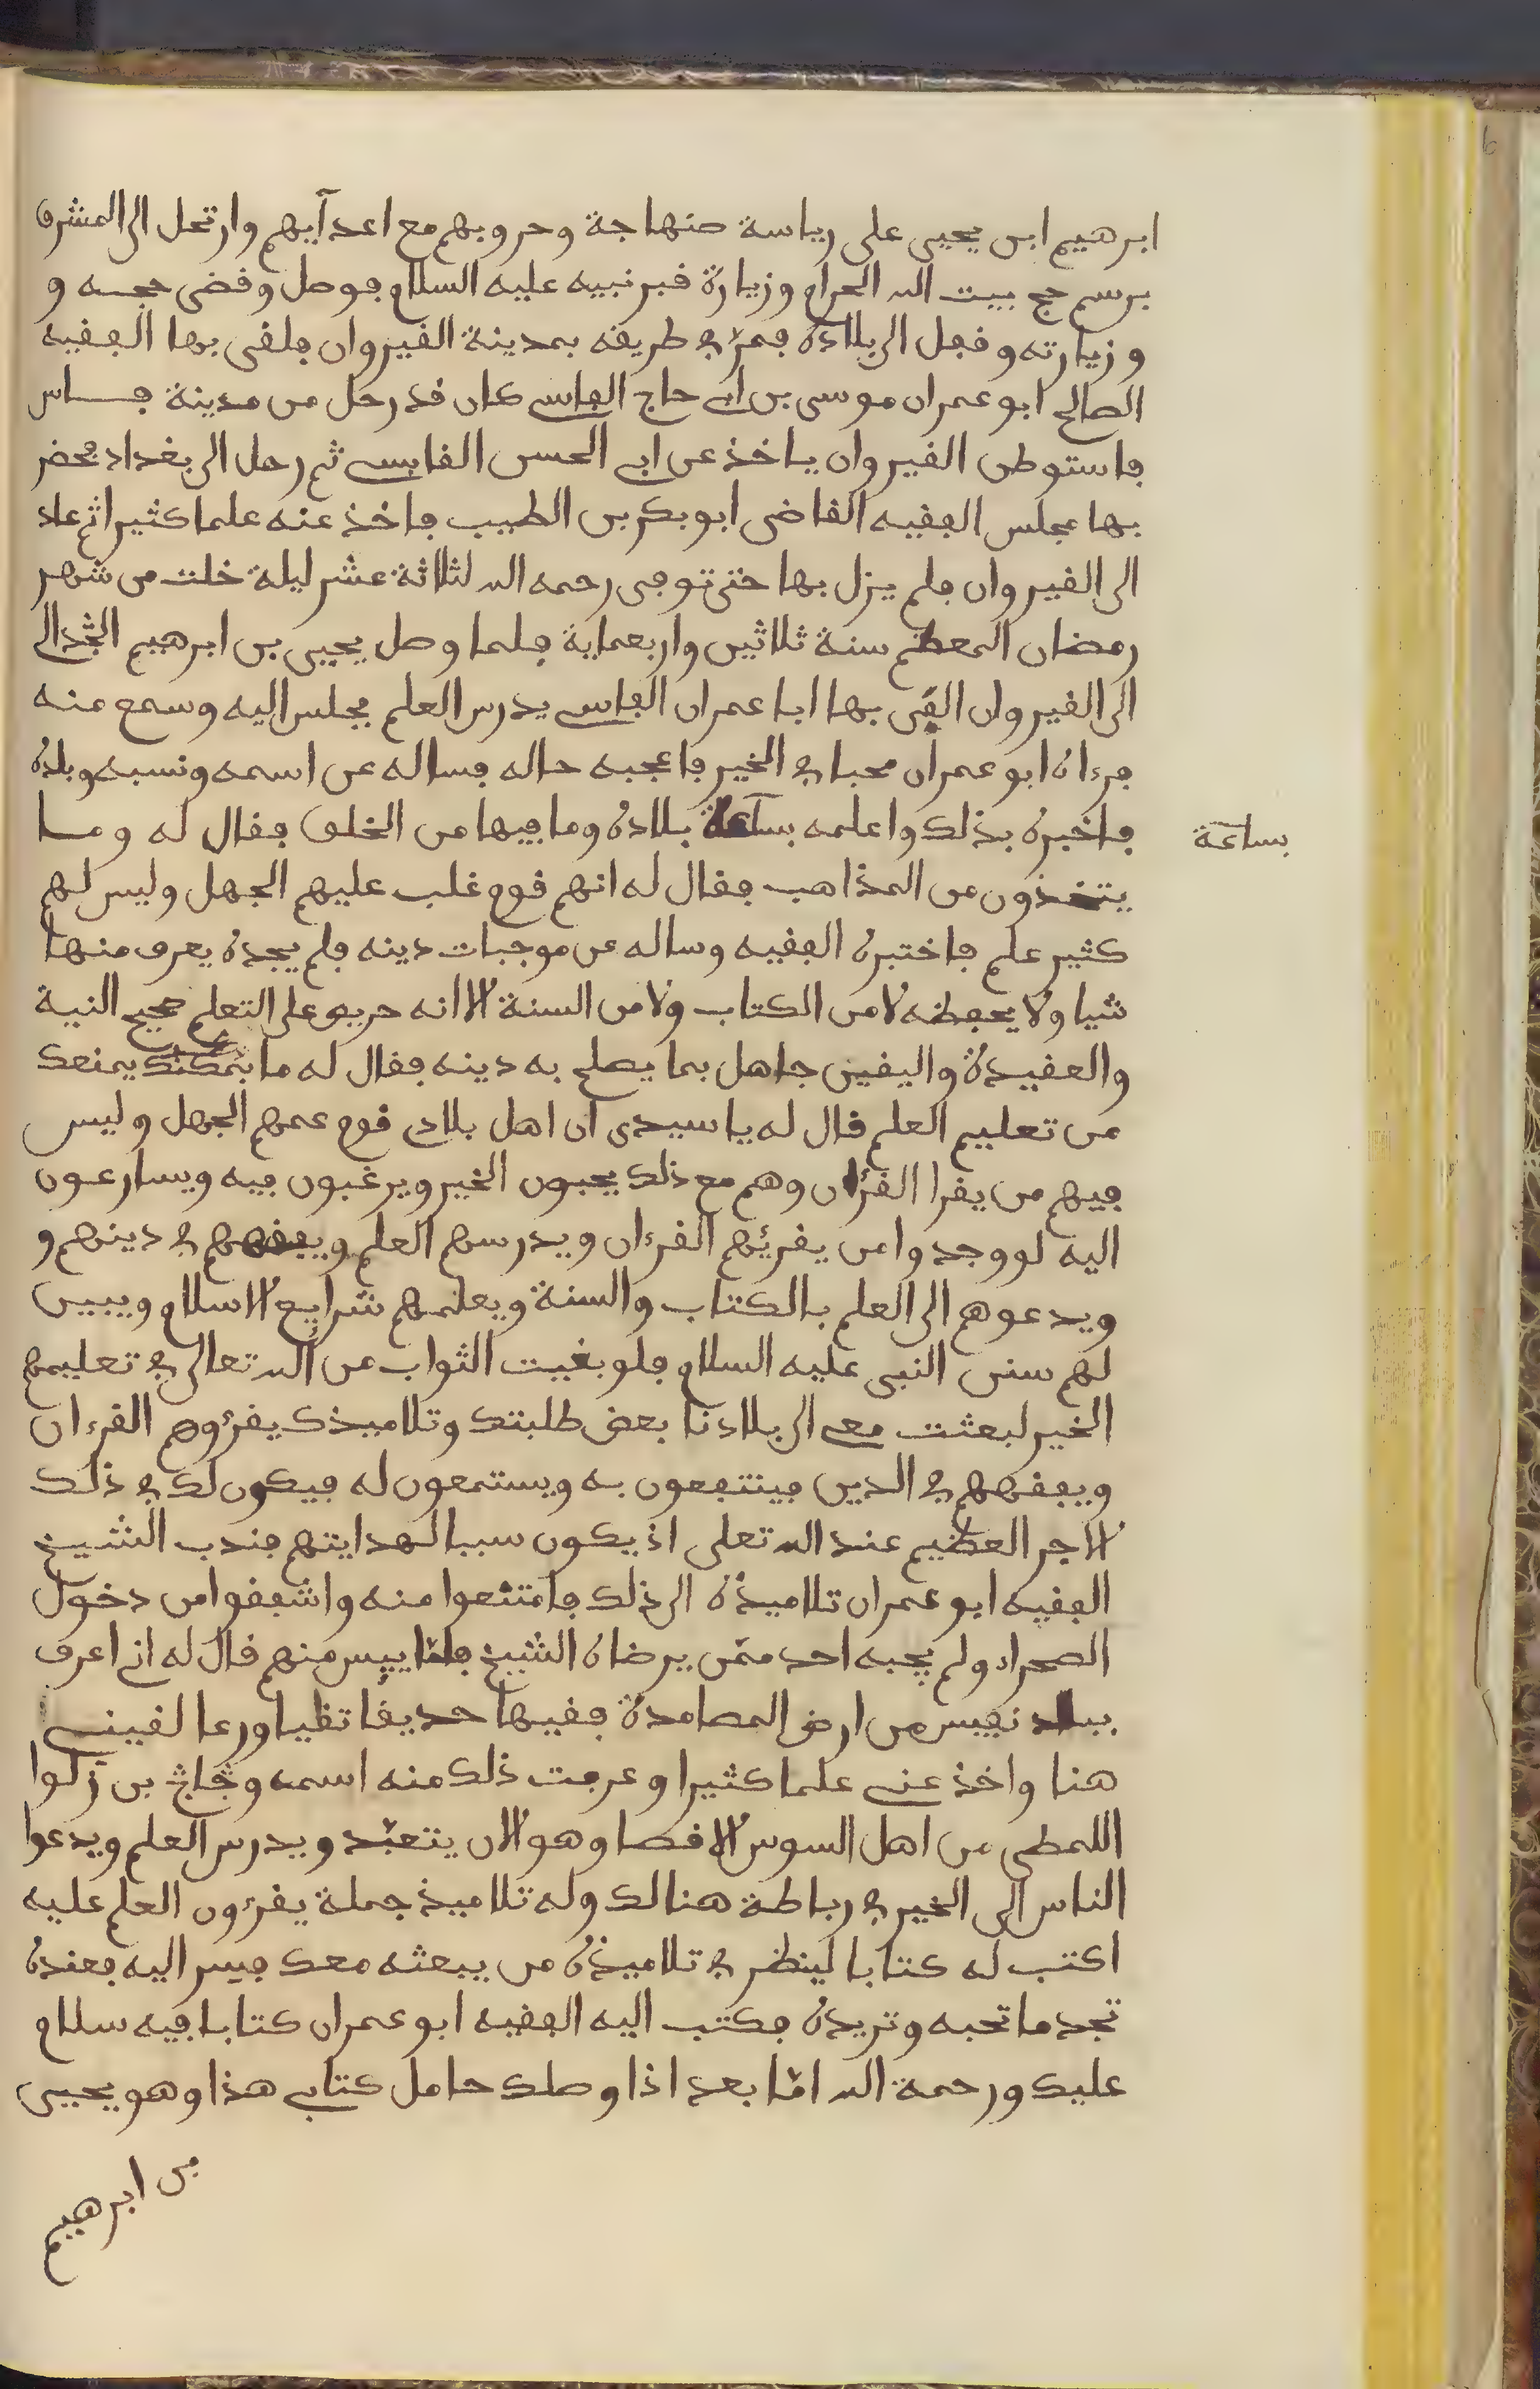 ابرهيم ابن يحيى على رياسة صنهاجة وحروبهم مع اعدآيهم وارتحل الى المشرق
برسم حج بيت الله الحرام وزيارة قبر نبيه عليه السلام فوصل وقضى حجه و
و زيارته وقفل الى بلاده فمرّ في طريقه بمدينة القيروان فلقى بها الفقيه
الصالح ابو عمران موسى بن ابي حاج الفاسي كان قد رحل من مدينة فاس
فاستوطن القيروان ياخذ عن ابي الحسن القابسي ثم رحل الى بغداد فحضر
بها مجلس الفقيه القاضى ابو بكر بن الطيب فاخذ عنه علما كثيرا ثم عاد
الى القيروان فلم يزل بها حتى توفى رحمه الله لثلاثة عشر ليلة خلت من شهر
رمضان المعظم سنة ثلاثين واربعماية فلما وصل يحيى بن ابرهيم الجدالى
الى القيروان الفى بها ابا عمران الفاسي يدرس العلم فجلس اليه وسمع منه
فرءاه ابو عمران محبا في الخير فاعجبه حاله فساله عن اسمه ونسبه وبلده
فاخبره بذلك واعلمه بساعة بلاده وما فيها من الخلق فقال له وما
بساعة
يتخذون من المذاهب فقال له انهم قوم غلب عليهم الجهل وليس لهم
كثير علم فاختبره الفقيه وساله عن موجبات دينه فلم يجده يعرف منها
شيا ولا يحفظه لا من الكتاب ولا من السنة الا انه حريص على التعلم صحيح النية
والعقيدة واليقين جاهل بما يصلح به دينه فقال له ما يمنعك
من تعليم العلم قال له يا سيدى ان اهل بلادي قوم عمهم الجهل وليس
فيهم من يقرا القرءان وهم مع ذلك يحبون الخير ويرغبون فيه ويسارعون
اليه لو وجدوا من يقريهم القرءان ويدرسهم العلم ويفقههم في دينهم و
ويدعوهم الى العلم بالكتاب والسنة ويعلمهم شرايع الاسلام ويبين
لهم سنن النبى عليه السلام فلو بغيت الثواب من الله تعالى في تعليمهم
الخير لبعثت معي الى بلادنا بعض طلبتك وتلاميذك يقرءوهم القرءان
ويفقههم في الدين فينتفعون به ويستمعون له فيكون لك في ذلك
الاجر العظيم عند الله تعلى اذ يكون سببا لهدايتهم فندب الشيخ
الفقيه ابو عمران تلاميذه الى ذلك فامتنعوا منه واشفقوا من دخول
الصحراء ولم يجبه احد ممّن يرضاه الشيخ فلمّا ييس منهم قال له اني اعرف
ببلاد نفيس من ارض المصامدة فقيها حديقا تقيا ورعا لقيني
هنا واخذ عني علما كثيرا وعرفت ذلك منه اسمه وجاج بن زلوا
اللمطى من اهل السوس الاقصا وهو الان يتعبّد ويدرس العلم ويدعوا
الناس الى الخير في رباطة هنالك وله تلاميذ جملة يقرءون العلم عليه
اكتب له كتابا لينظر في تلاميذه من يبعثه معك فسر اليه فعنده
تجد ما تحبه وتريده فكتب اليه الفقيه ابو عمران كتابا فيه سلام
عليك ورحمة الله امّا بعد اذا وصلك حامل كتابي هذا وهو يحيى
بن ابرهيم